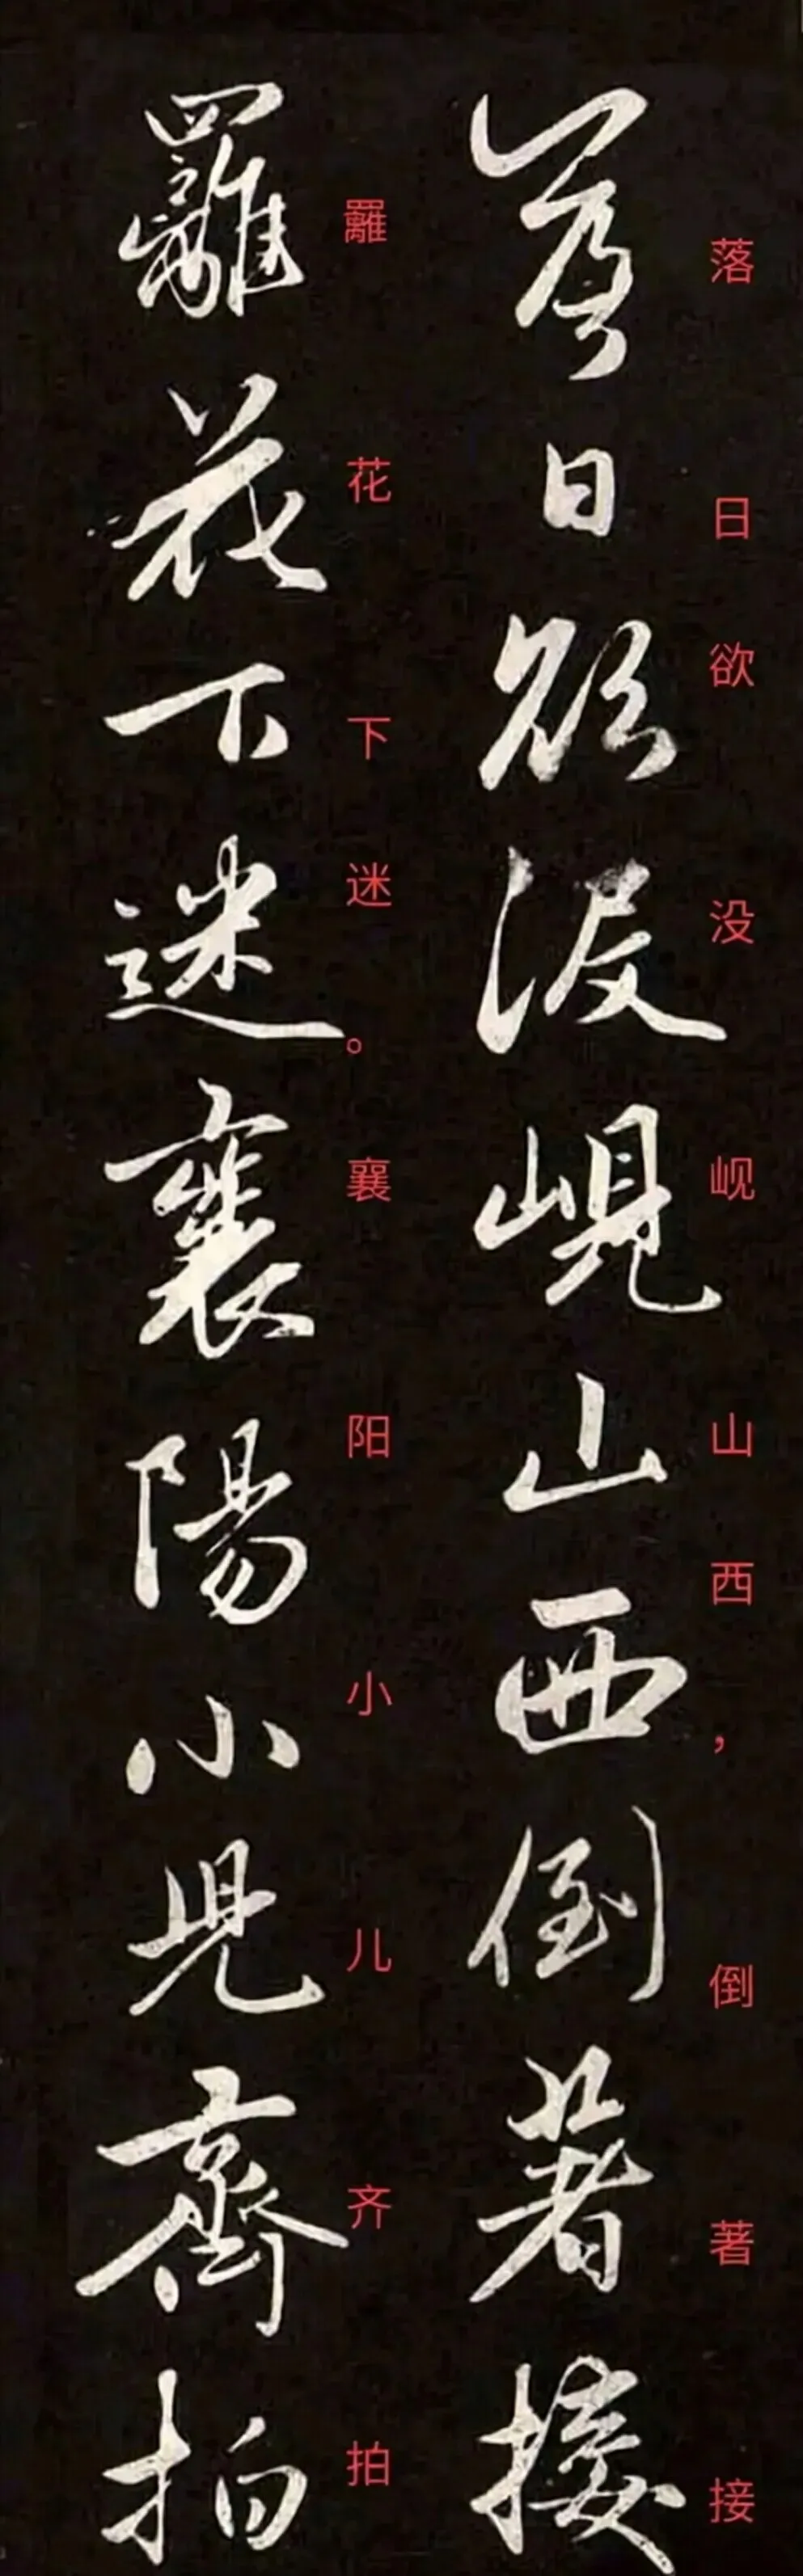 落日欲没岘山西，倒著接
落日欲没峴山西倒著接
䍦花下迷。襄阳小儿齐拍
䍦花下迷襄陽小兒齊拍